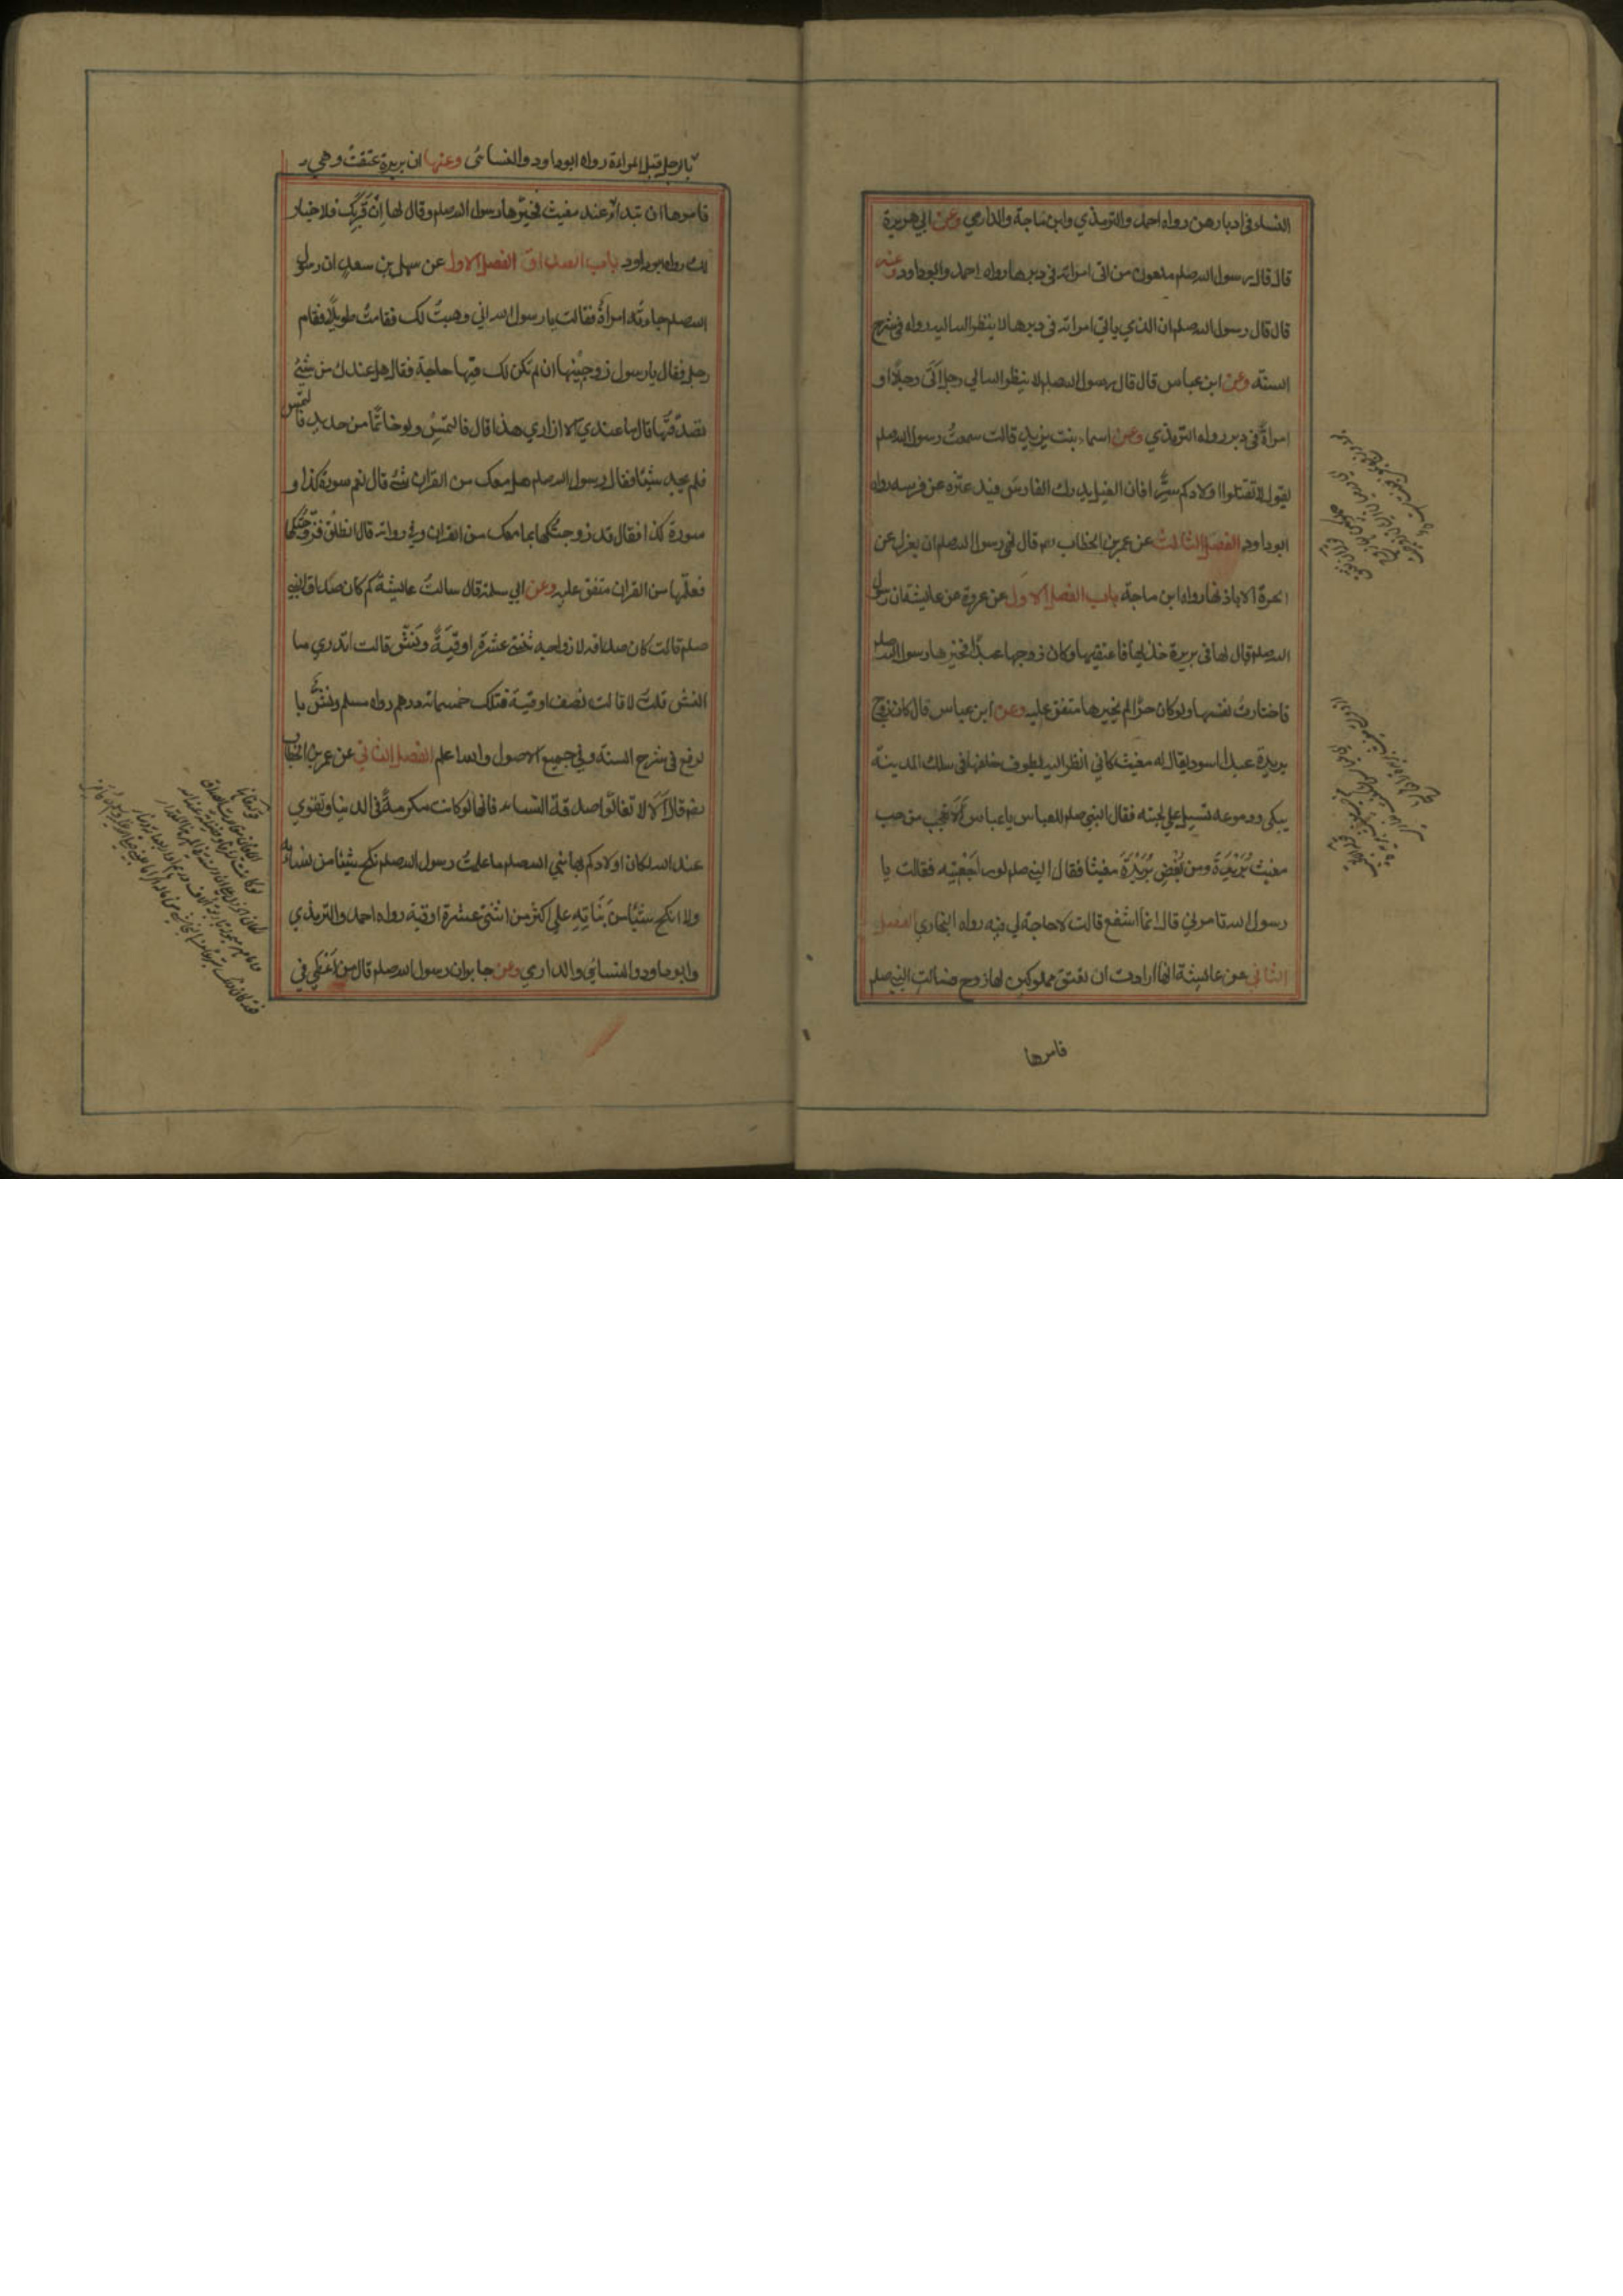 النساء في ادبارهن رواه احمد والترمذي وابن ماجة والدارمي وعن ابي هريرة
قال قال رسول الله صلم ملعون من اتى امراته في دبرها رواه احمد وابو داود وعنه
قال قال رسول الله صلم ان الذي ياتي امراته في دبرها لا ينظر الله اليه رواه في شرح
السنه وعن ابن عباس قال قال رسول الله صلم لا ينظر الله الي رجل اتى رجلا او
امراة في دبر رواه الترمذي وعن اسماء بنت يزيد قالت سمعت رسول الله صلم
يقول لا تقتلوا اولادكم سرا فان الغيل يدرك الفارس فيدعثره عن فرسه رواه
ابو داود الفصل الثالث عن عمر بن الخطاب رضه قال نهى رسول الله صلم ان يعزل عن
الحرة الا باذنها رواه ابن ماجة باب الفصل الاول عن عروة عن عايشة ان رسول
الله صلم قال لها في بريرة خذيها فاعتقيها وكان زوجها عبدا فخيرها رسول الله صلم
فاختارت نفسها ولو كان حرا لم يخيرها متفق عليه وعن ابن عباس قال كان زوج
بريرة عبدا اسود يقال له مغيث كاني انظر اليه يطوف خلفها في سكك المدينة
يبكى ودموعه تسيل علي لحيته فقال النبي صلم للعباس يا عباس الا تعجب من حب
مغيث بريرة ومن بغض بريرة مغيثا فقال النبي صلم لو راجعتيه فقالت يا
رسول الله تامرني قال انما اشفع قالت لا حاجة لي فيه رواه البخاري الفصل
الثاني عن عايشة انها ارادت ان تعتق مملوكين لها زوج فسالت النبي صلم
فامرها
بالرجل قبل المراءة رواه ابو داود والنسائى وعنها ان بريرة عتقت وهي
فامرها ان تبدا عند مغيث فخيرها رسول الله صلم وقال لها ان قربك فلا خيار
لك رواه ابو داود باب الصداق الفصل الاول عن سهل بن سعد ان رسول
الله صلم جاءته امراة فقالت يا رسول الله اني وهبت لك فقامت طويلا فقام
رجل فقال يا رسول زوجنيها ان لم تكن لك فيها حاجة فقال هل عندك من شيئ
تصدقها قال ما عندي الا ازاري هذا قال فالتمس ولو خاتما من حديد فالتمس
فلم يجد شيئا فقال رسول الله صلم هل معك من القران شئ قال نعم سورة كذا و
سورة كذا فقال قد زوجتكها بما معك من القران وفي رواية قال انطلق فزوجتكها
فعلمها من القران متفق عليه وعن ابي سلمة قال سالت عايشة كم كان صداق النبي
صلم قالت كان صداقه لازواجه ثنتي عشرة اوقية ونش قالت اتدري ما
النش قلت لا قالت نصف اوقية فتلك خمسمائة درهم رواه مسلم ونش با
لرفع في شرح السنة وفي جميع الاصول والله اعلم الفصل الثاني عن عمر بن الخطاب
رضه قال الا لا تغالوا صدقة النساء فانها لو كانت مكرمة في الدنيا وتقوي
عند الله لكان اولادكم بها نبي الله صلم ما علمت رسول الله صلم نكح شيئا من نسائه
ولا انكح شيئا من بناته علي اكثر من اثنتي عشرة اوقية رواه احمد والترمذي
وابو داود والنسائي والدارمي وعن جابر ان رسول الله صلم قال من اعطي في